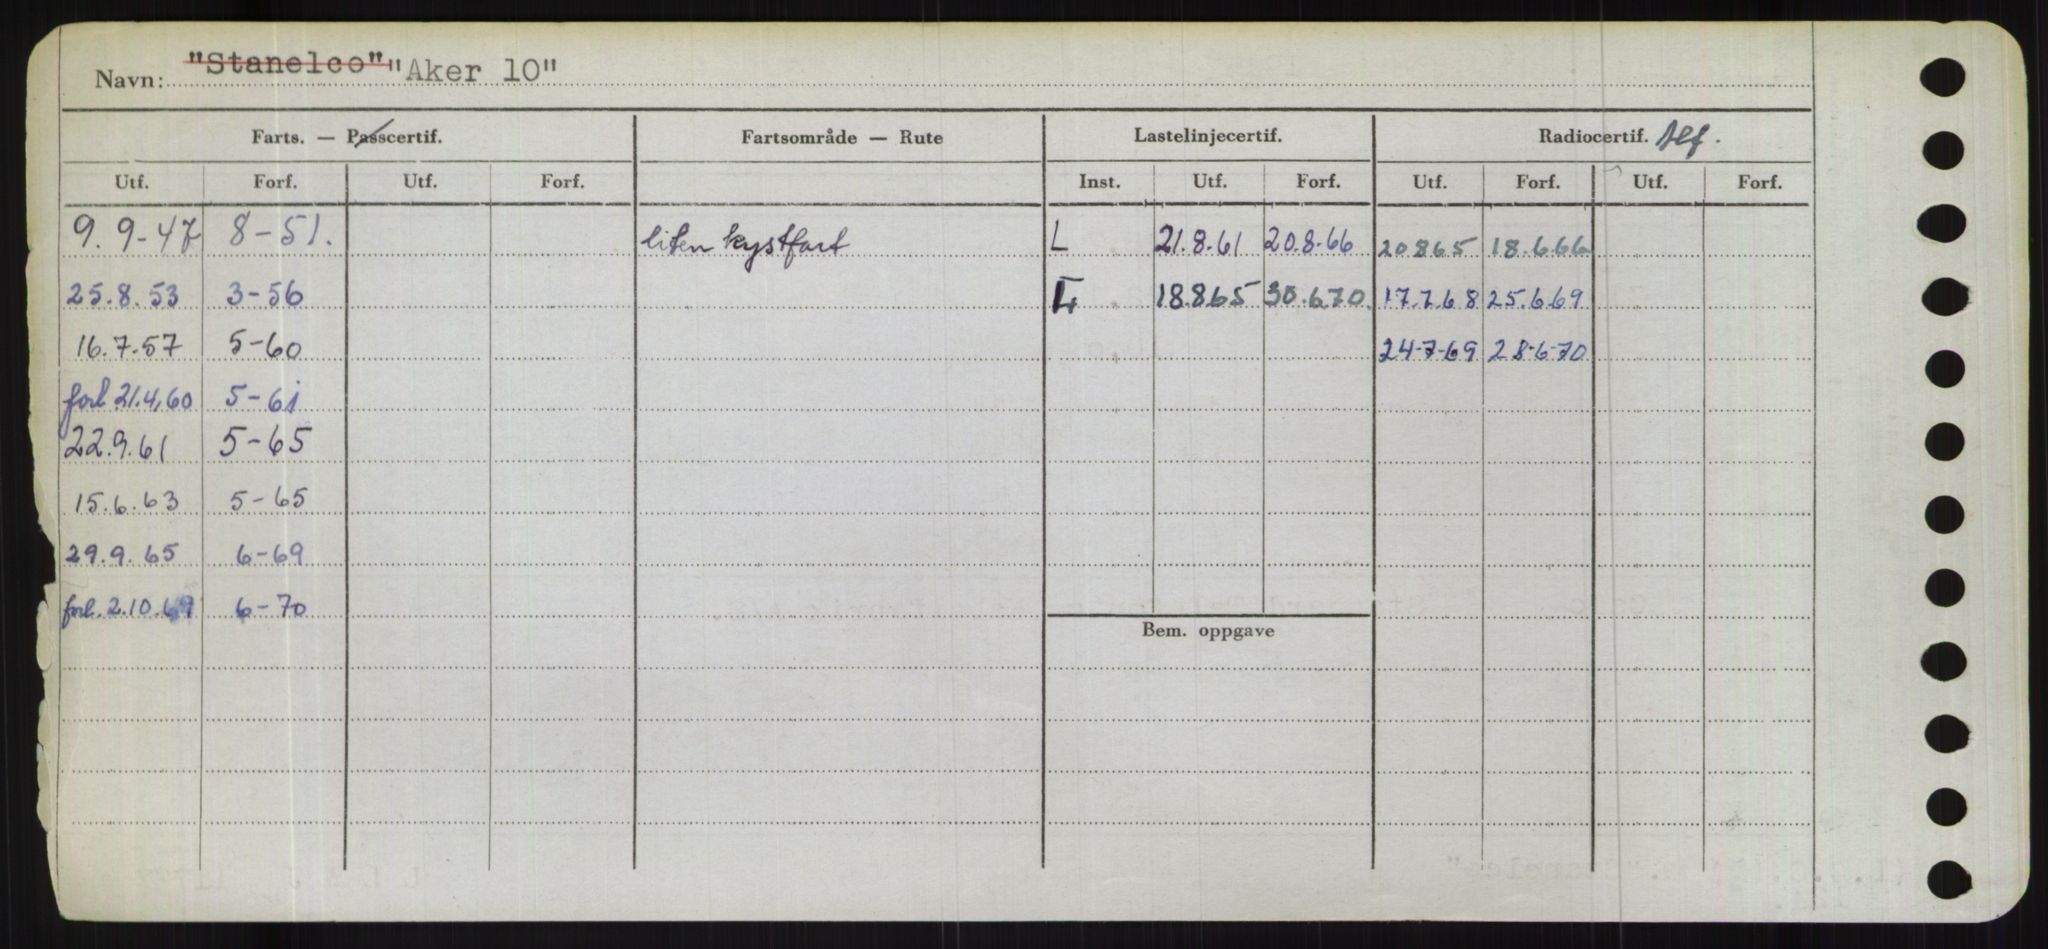 Navn: "Stanelco" "Aker 10"
Farts. — Passcertif. Fartsområde — Rute Lastelinjecertif. Radiocertif. tlf.
Utf. Forf. Utf. Forf. Inst. Utf. Forf. Utf. Forf. Utf. Forf.
9.9-47 8-51. liten kystfart L 21.8.61 20.8-66 20865 18.666
25.8.53 3-56 18.865 30.6.70. 17.7.68 25.6.69
16.7.57 5-60 24-7-69 28-6-70
forl 21.4,60 5-61
22.9.61 5-65
15.6.63 5-65
29.9.65 6-69
forl. 2.10.69 6-70
Bem. oppgave